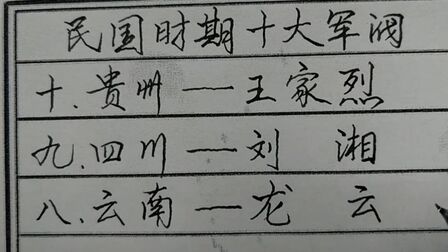 民国时期十大军阀
十.贵州—王家烈
九.四川—刘 湘
八.云南—龙 云